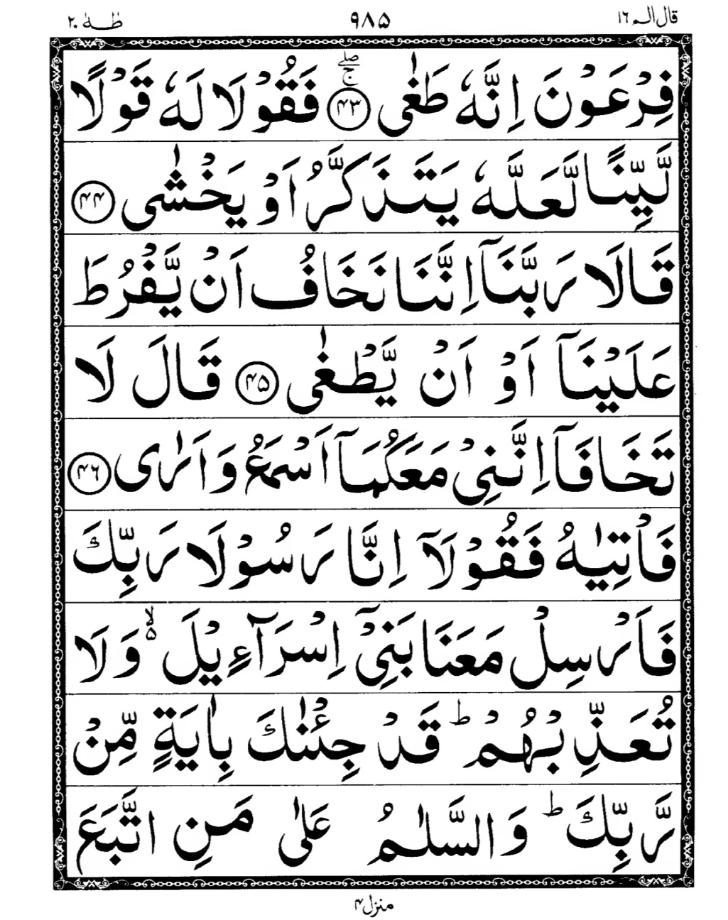 قال الـم ١٦ ٩٨۵ طٰهٰ ٢٠
فِرْعَوْنَ اِنَّهٗ طَغٰى ۚۖ ﴿۴۳﴾ فَقُوْلَا لَهٗ قَوْلًا
لَّيِّنًا لَّعَلَّهٗ يَتَذَكَّرُ اَوْ يَخْشٰى ﴿۴۴﴾
قَالَا رَبَّنَآ اِنَّنَا نَخَافُ اَنْ يَّفْرُطَ
عَلَيْنَآ اَوْ اَنْ يَّطْغٰى ﴿۴۵﴾ قَالَ لَا
تَخَافَآ اِنَّنِيْ مَعَكُمَآ اَسْمَعُ وَاَرٰى ﴿۴۶﴾
فَاْتِيٰهُ فَقُوْلَآ اِنَّا رَسُوْلَا رَبِّكَ
فَاَرْسِلْ مَعَنَا بَنِيْٓ اِسْرَآءِيْلَ ۙ۵ وَلَا
تُعَذِّبْهُمْ ؕ قَدْ جِئْنٰكَ بِاٰيَةٍ مِّنْ
رَّبِّكَ ؕ وَالسَّلٰمُ عَلٰى مَنِ اتَّبَعَ
منزل ۴